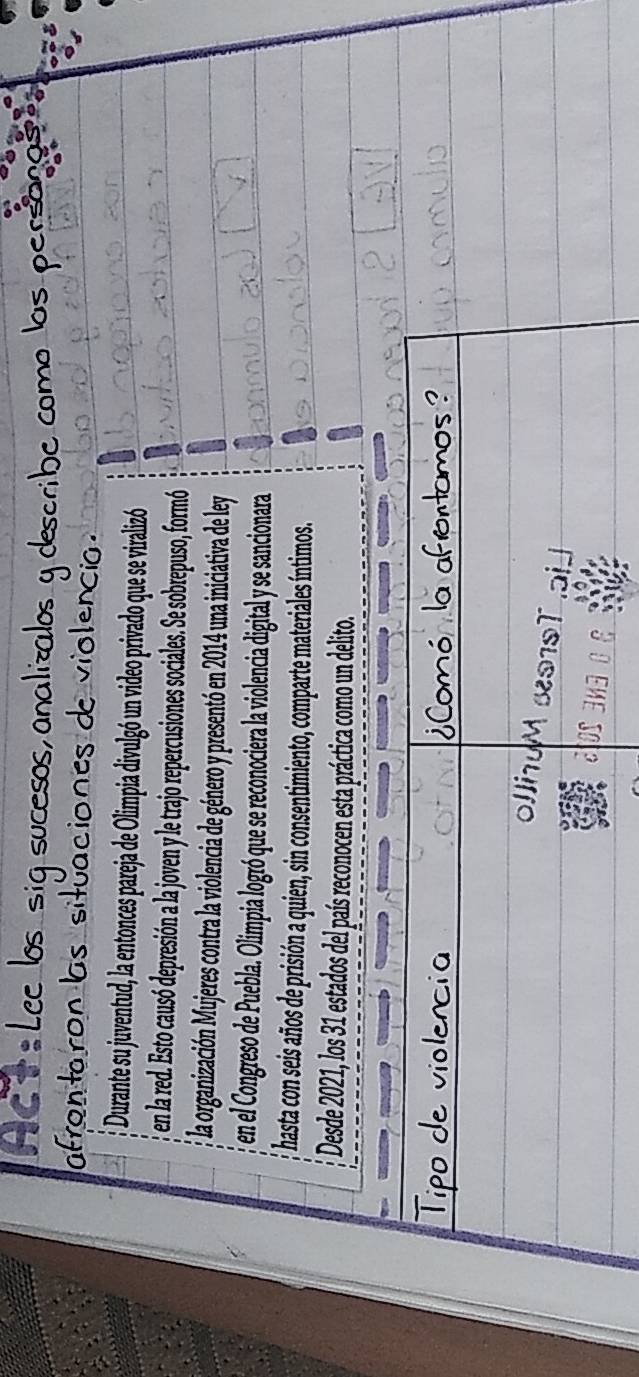 Act: Lee los sig sucesos, analizalos y describe como las personas
afrontaron las situaciones de violencia.
Durante su juventud, la entonces pareja de Olimpia divulgó un video privado que se viralizó
en la red. Esto causó depresión a la joven y le trajo repercusiones sociales. Se sobrepuso, formó
la organización Mujeres contra la violencia de género y presentó en 2014 una iniciativa de ley
en el Congreso de Puebla. Olimpia logró que se reconociera la violencia digital y se sancionara
hasta con seis años de prisión a quien, sin consentimiento, comparte materiales íntimos.
Desde 2021, los 31 estados del país reconocen esta práctica como un delito.
Tipo de violencia
¿Comó la afrontamos?